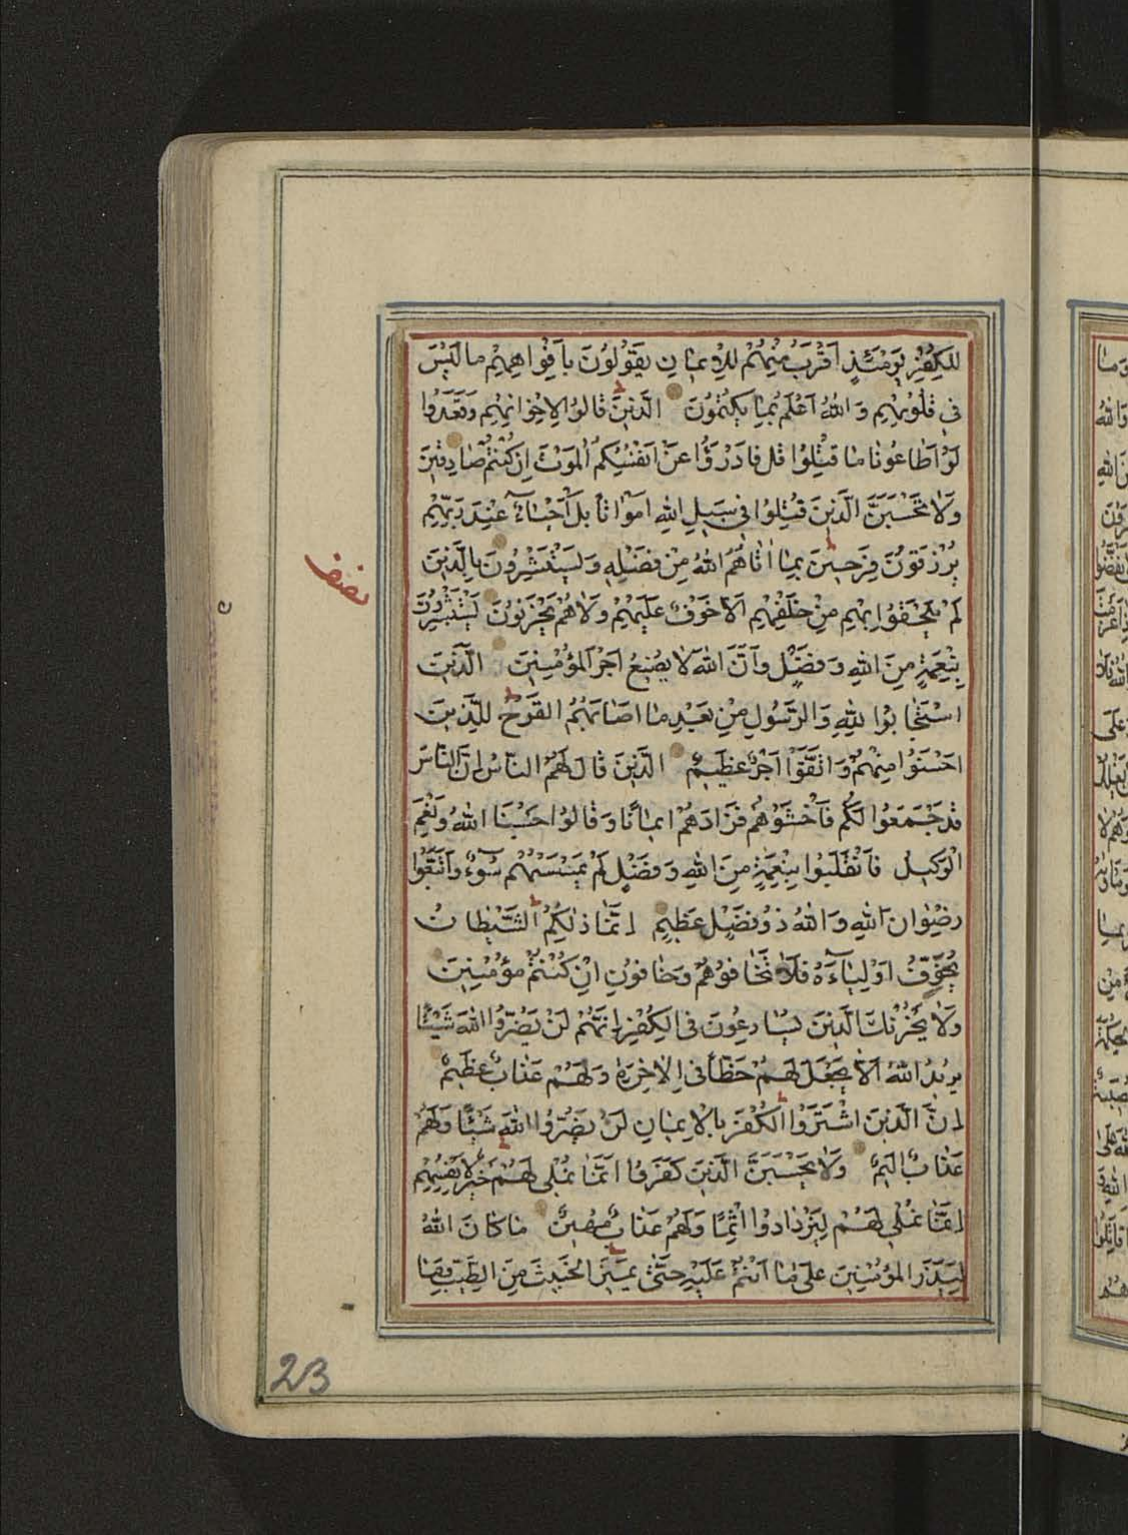 لِلكُفْرِ يَوْمَئِذٍ اَقْرَبُ مِنْهُمْ لِلْاِيمَانِ يَقُوْلُوْنَ بِاَفْوَاهِهِمْ مَا لَيْسَ
فِى قُلُوْبِهِمْ وَاللهُ اَعْلَمُ بِمَا يَكْتُمُوْنَ الَّذِيْنَ قَالُوْا لِاِخْوَانِهِمْ وَقَعَدُوا
لَوْ اَطَاعُوْنَا مَا قُتِلُوْا قُلْ فَادْرَؤُا عَنْ اَنْفُسِكُمُ الْمَوْتَ اِنْ كُنْتُمْ صَادِقِيْنَ
وَلَا تَحْسَبَنَّ الَّذِيْنَ قُتِلُوْا فِى سَبِيلِ اللهِ اَمْوَاتًا بَلْ اَحْيَاءٌ عِنْدَ رَبِّهِمْ
يُرْزَقُوْنَ فَرِحِيْنَ بِمَا اٰتَاهُمُ اللهُ مِنْ فَضْلِهٖ وَيَسْتَبْشِرُوْنَ بِالَّذِيْنَ
نصف
لَمْ يَلْحَقُوْا بِهِمْ مِنْ خَلْفِهِمْ اَلَّا خَوْفٌ عَلَيْهِمْ وَلَا هُمْ يَحْزَنُوْنَ يَسْتَبْشِرُوْنَ
بِنِعْمَةٍ مِنَ اللهِ وَفَضْلٍ وَاَنَّ اللهَ لَا يُضِيْعُ اَجْرَ الْمُؤْمِنِيْنَ الَّذِيْنَ
اسْتَجَابُوْا لِلّٰهِ وَالرَّسُوْلِ مِنْ بَعْدِ مَا اَصَابَهُمُ القَرْحُ لِلَّذِيْنَ
اَحْسَنُوْا مِنْهُمْ وَاتَّقَوْا اَجْرٌ عَظِيْمٌ الَّذِيْنَ قَالَ لَهُمُ النَّاسُ اِنَّ النَّاسَ
قَدْ جَمَعُوْا لَكُمْ فَاخْشَوْهُمْ فَزَادَهُمْ اِيْمَانًا وَقَالُوْا حَسْبُنَا اللهُ وَنِعْمَ
الْوَكِيْلُ فَانْقَلَبُوْا بِنِعْمَةٍ مِنَ اللهِ وَفَضْلٍ لَمْ يَمْسَسْهُمْ سُوْءٌ وَاتَّبَعُوْا
رِضْوَانَ اللهِ وَاللهُ ذُوْ فَضْلٍ عَظِيْمٍ اِنَّمَا ذٰلِكُمُ الشَّيْطَانُ
يُخَوِّفُ اَوْلِيَاءَهُ فَلَا تَخَافُوْهُمْ وَخَافُوْنِ اِنْ كُنْتُمْ مُؤْمِنِيْنَ
وَلَا يَحْزُنْكَ الَّذِيْنَ يُسَارِعُوْنَ فِى الكُفْرِ اِنَّهُمْ لَنْ يَضُرُّوا اللهَ شَيْئًا
يُرِيْدُ اللهُ اَلَّا يَجْعَلَ لَهُمْ حَظًّا فِى الْاٰخِرَةِ وَلَهُمْ عَذَابٌ عَظِيْمٌ
اِنَّ الَّذِيْنَ اشْتَرَوُا الْكُفْرَ بِالْاِيْمَانِ لَنْ يَضُرُّوا اللهَ شَيْئًا وَلَهُمْ
عَذَابٌ اَلِيْمٌ وَلَا يَحْسَبَنَّ الَّذِيْنَ كَفَرُوا اَنَّمَا نُمْلِى لَهُمْ خَيْرٌ لِاَنْفُسِهِمْ
اِنَّمَا نُمْلِى لَهُمْ لِيَزْدَادُوْا اِثْمًا وَلَهُمْ عَذَابٌ مُهِيْنٌ مَا كَانَ اللهُ
لِيَذَرَ الْمُؤْمِنِيْنَ عَلٰى مَا اَنْتُمْ عَلَيْهِ حَتّٰى يَمِيْزَ الْخَبِيْثَ مِنَ الطَّيِّبِ وَمَا
23